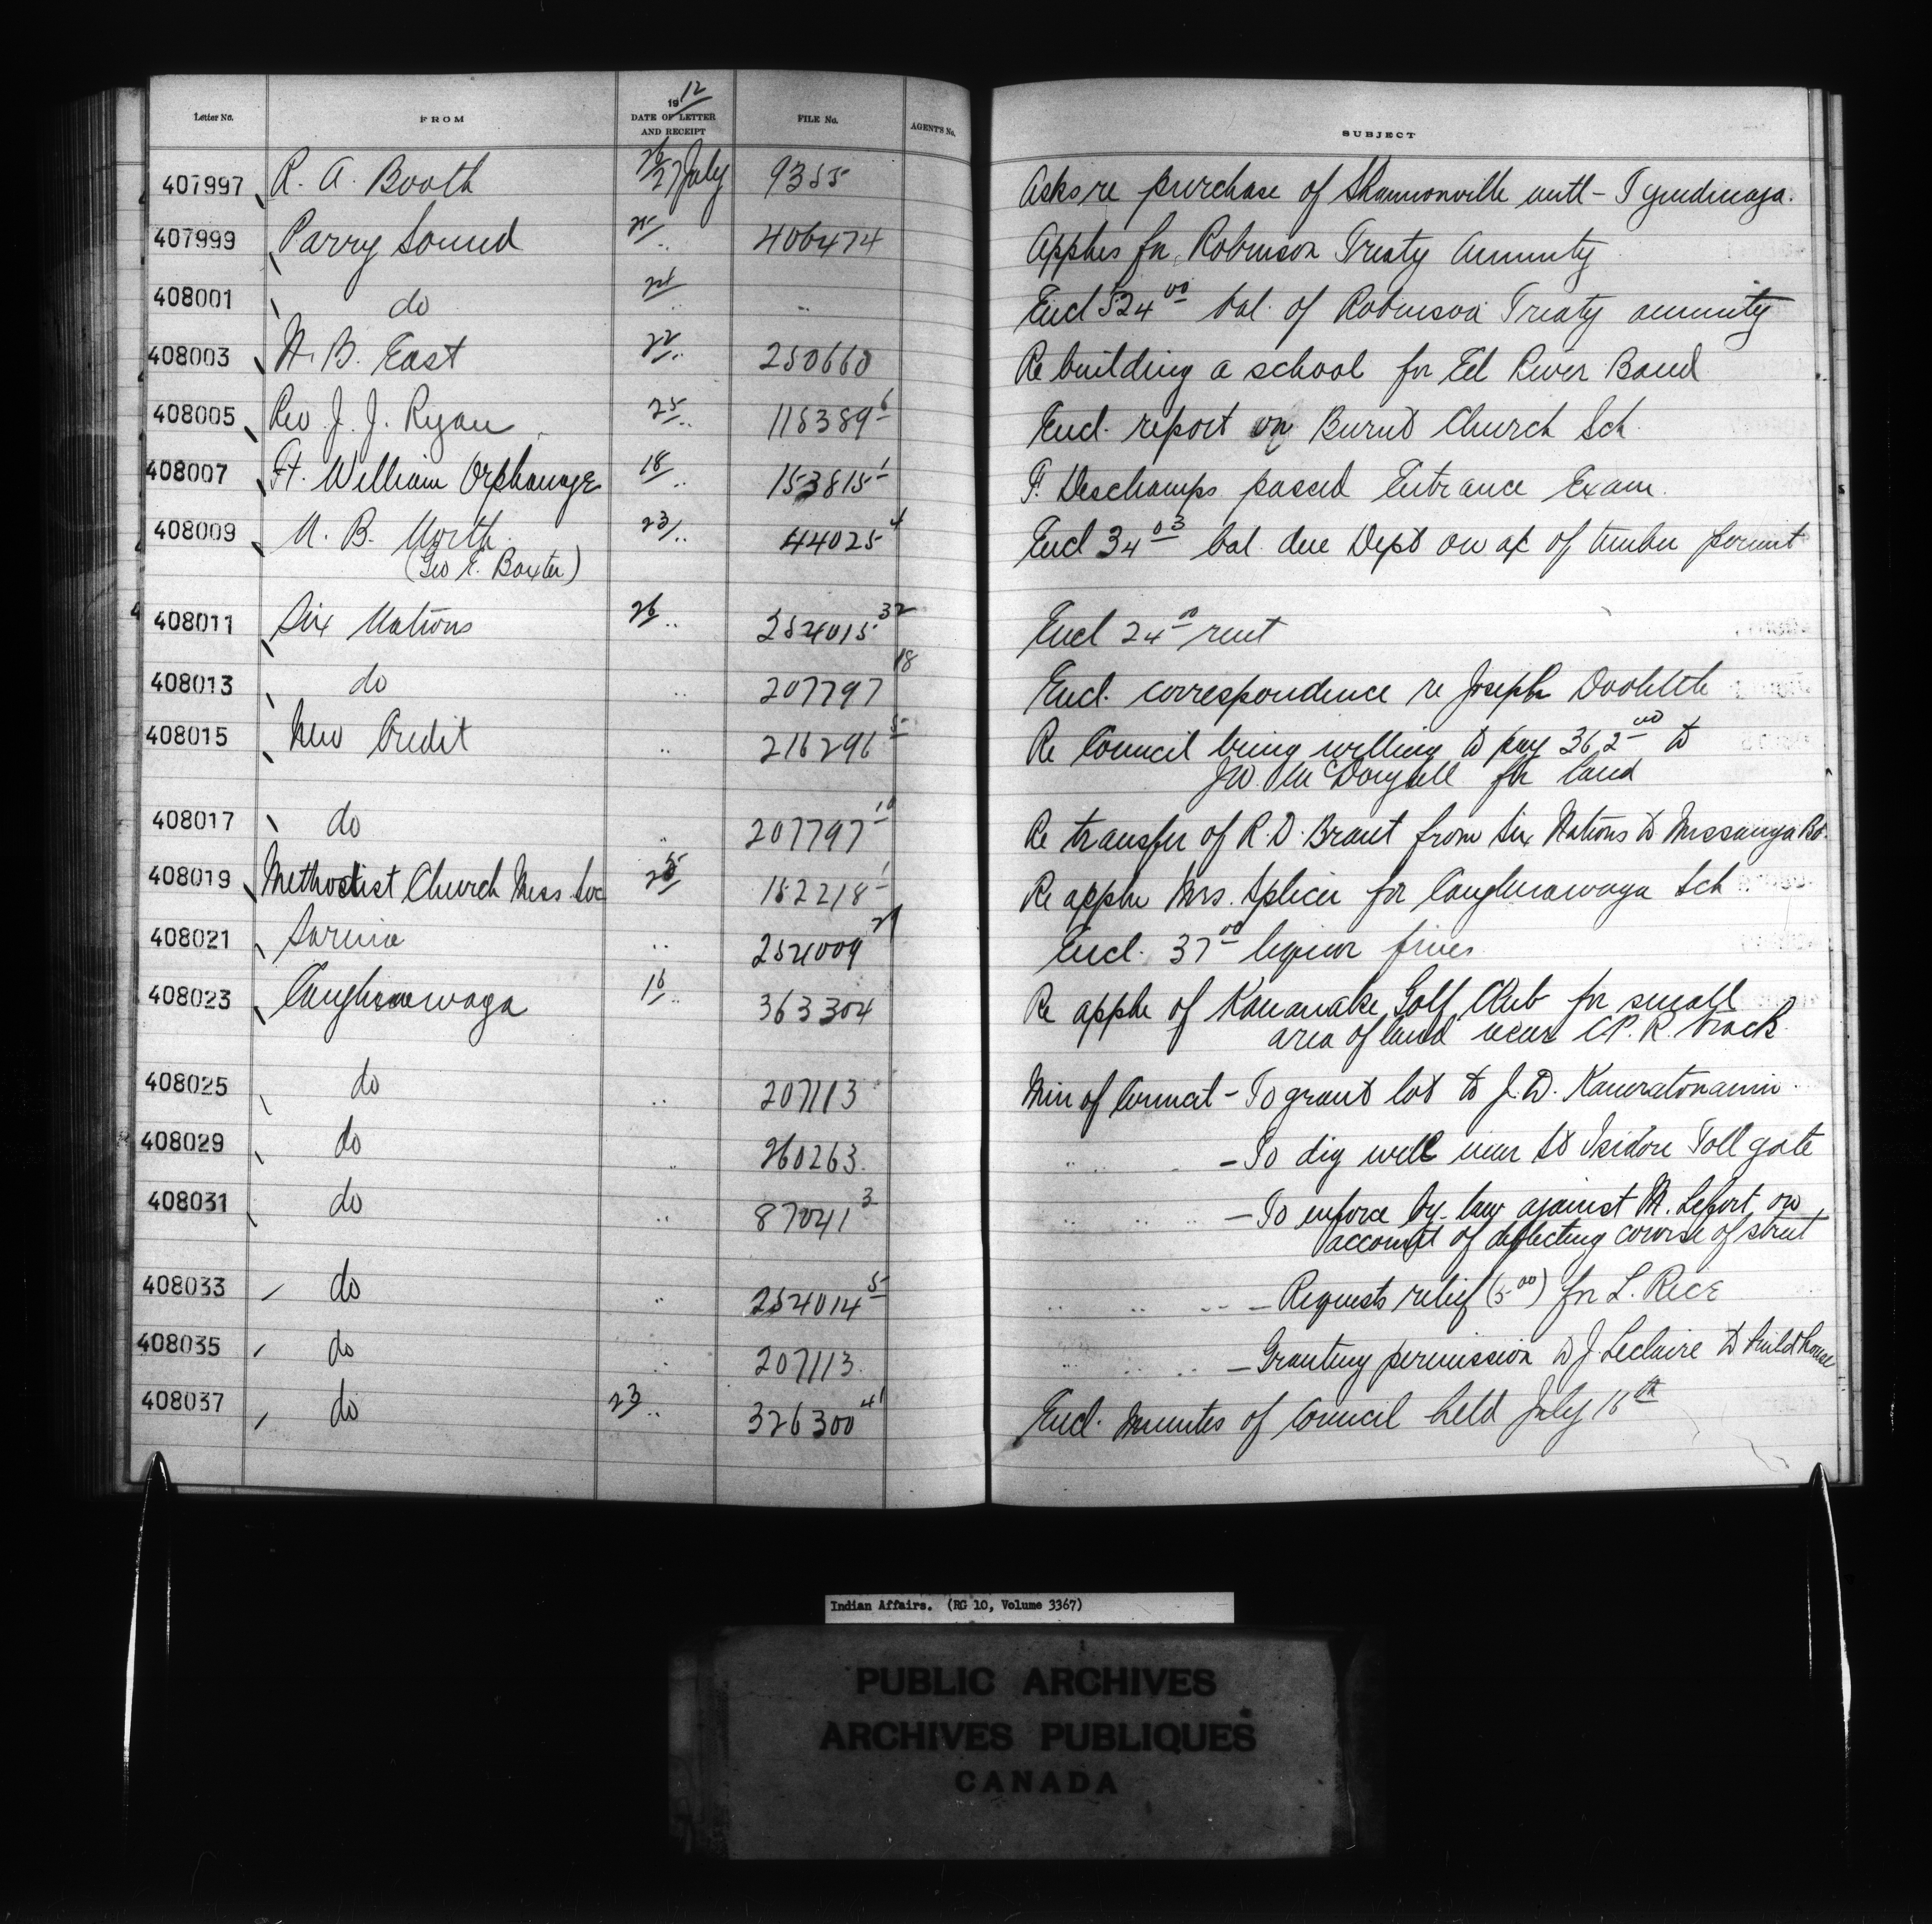 Letter No. FROM 1912 DATE OF LETTER AND RECEIPT FILE No. AGENT'S No. SUBJECT
407997 R. A. Booth 26/27 July 9355 Asks re purchase of Shannonville - Tyendinaga.
407999 Parry Sound 25 " 406474 Applies for Robinson Treaty Annuity
408001 do " " Encl 524 00 bal. of Robinson Treaty annuity
408003 N. B. East 22 " 250660 Re building a school for Eel River Band
408005 Rev. J. J. Ryan 25 " 115389 6 Encl. report on Burnt Church Sch.
408007 Ft. William Orphanage 18 " 153815 1 F. Deschamps passed Entrance Exam.
408009 N. B. North 23 " 44025 4 Encl 34 03 bal. due Dept on a/c of timber permit
(Geo E. Baxter)
408011 Six Nations 26 " 254015 32 Encl 24 00 rent
408013 do " 207797 18 Encl. correspondence re Joseph
408015 New Credit " 216296 5 Re Council being willing to pay 362 00 to
J W. McDougall for land
408017 do " 207797 Re transfer of R. D. Brant from Six Nations to Missauga Bd.
408019 Methodist Church Miss. Soc 25 152218 1 Re appln Mrs. Splicer for Caughnawaga Sch
408021 Sarnia " 254009 21 Encl. 37 00 liquor fines
408023 Caughnawaga 16 " 363304 Re appln of Kanawake Golf Club for small
area of land near C.P.R. track.
408025 do " 207113 Min of Council - To grant lot to J. D.
408029 do " 260263 " " - To dig well near St Isidore Toll gate
408031 do " 87041 3 " " - To enforce by-law against M. Lefort on
account of deflecting course of street
408033 do " 254014 5 " " - Requests relief (5 00) for L. Rice
408035 do " 207113 " " - Granting permission to J. Leclaire to build house
408037 do 23 " 326300 41 Encl. Minutes of Council held July 16th
Indian Affairs. (RG 10, Volume 3367)
PUBLIC ARCHIVES
ARCHIVES PUBLIQUES
CANADA